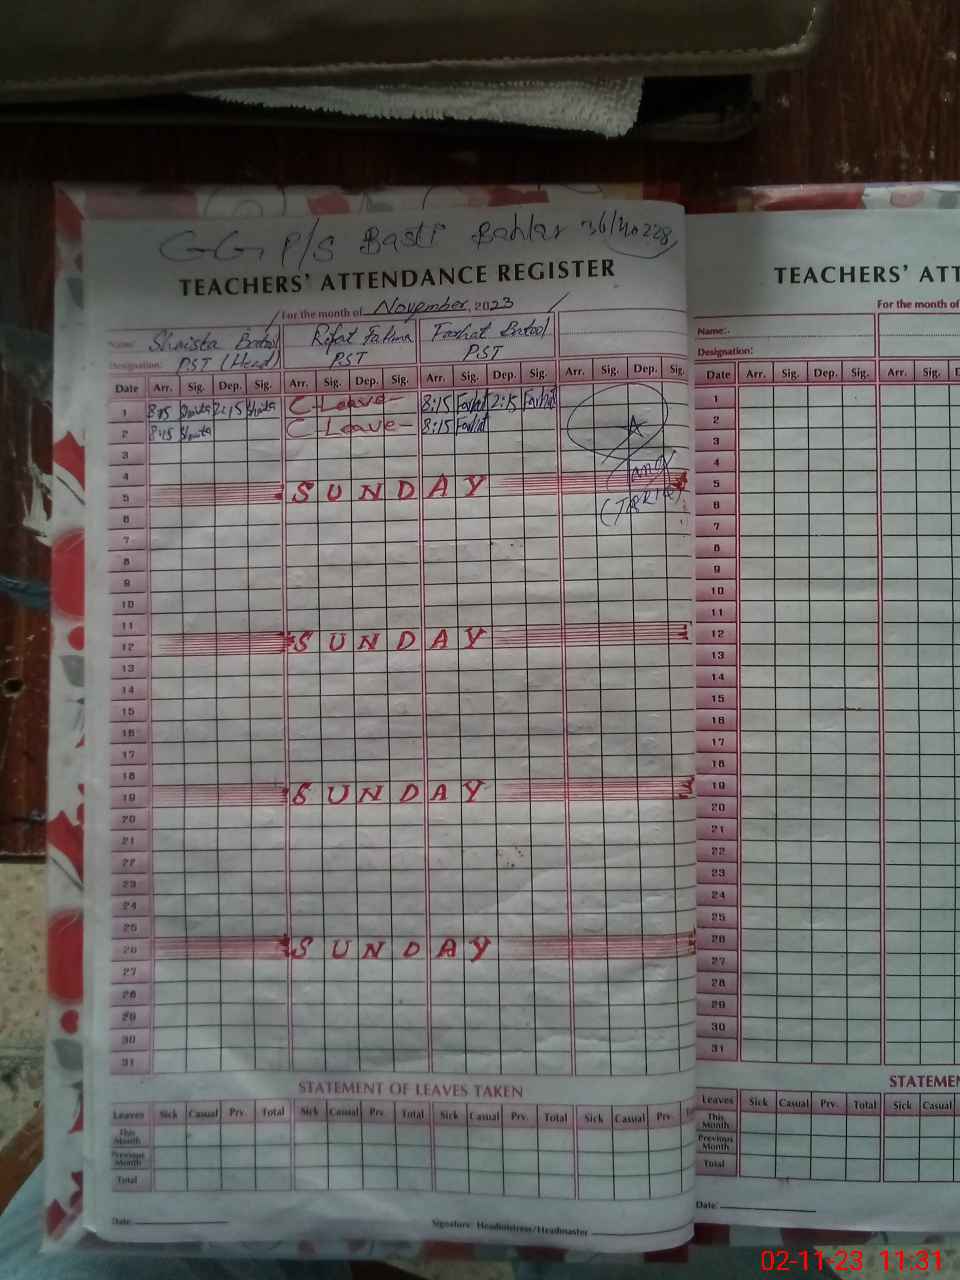 GG P/S Basti
TEACHERS' ATTENDANCE REGISTER
For the month of November, 2023
Name: Shaista Batool Rifat Fatima Farhat Batool
Designation: PST (Head) PST PST
Date Arr. Sig. Dep. Sig. Arr. Sig. Dep. Sig. Arr. Sig. Dep. Sig. Arr. Sig. Dep. Sig.
1 8:15 Shaista 2:15 Shaista C Leave- 8:15 Farhat 2:15 Farhat
2 8:15 Shaista C Leave- 8:15 Farhat
3
4
5 SUNDAY
6
7
8
9
10
11
12 SUNDAY
13
14
15
16
17
18
19 SUNDAY
20
21
22
23
24
25
26 SUNDAY
27
28
29
30
31
STATEMENT OF LEAVES TAKEN
Leaves Sick Casual Prv. Total Sick Casual Prv. Total Sick Casual Prv. Total Sick Casual Prv
This Month
Previous Month
Total
Date: Signature: Headmistress/Headmaster
TEACHERS' ATT
For the month of
Name:.
Designation:
Date Arr. Sig. Dep. Sig. Arr. Sig. D
1
2
3
4
5
6
7
8
9
10
11
12
13
14
15
16
17
18
19
20
21
22
23
24
25
26
27
28
29
30
31
STATEMEN
Leaves Sick Casual Prv. Total Sick Casual
This Month
Previous Month
Total
Date:
02-11-23 11:31